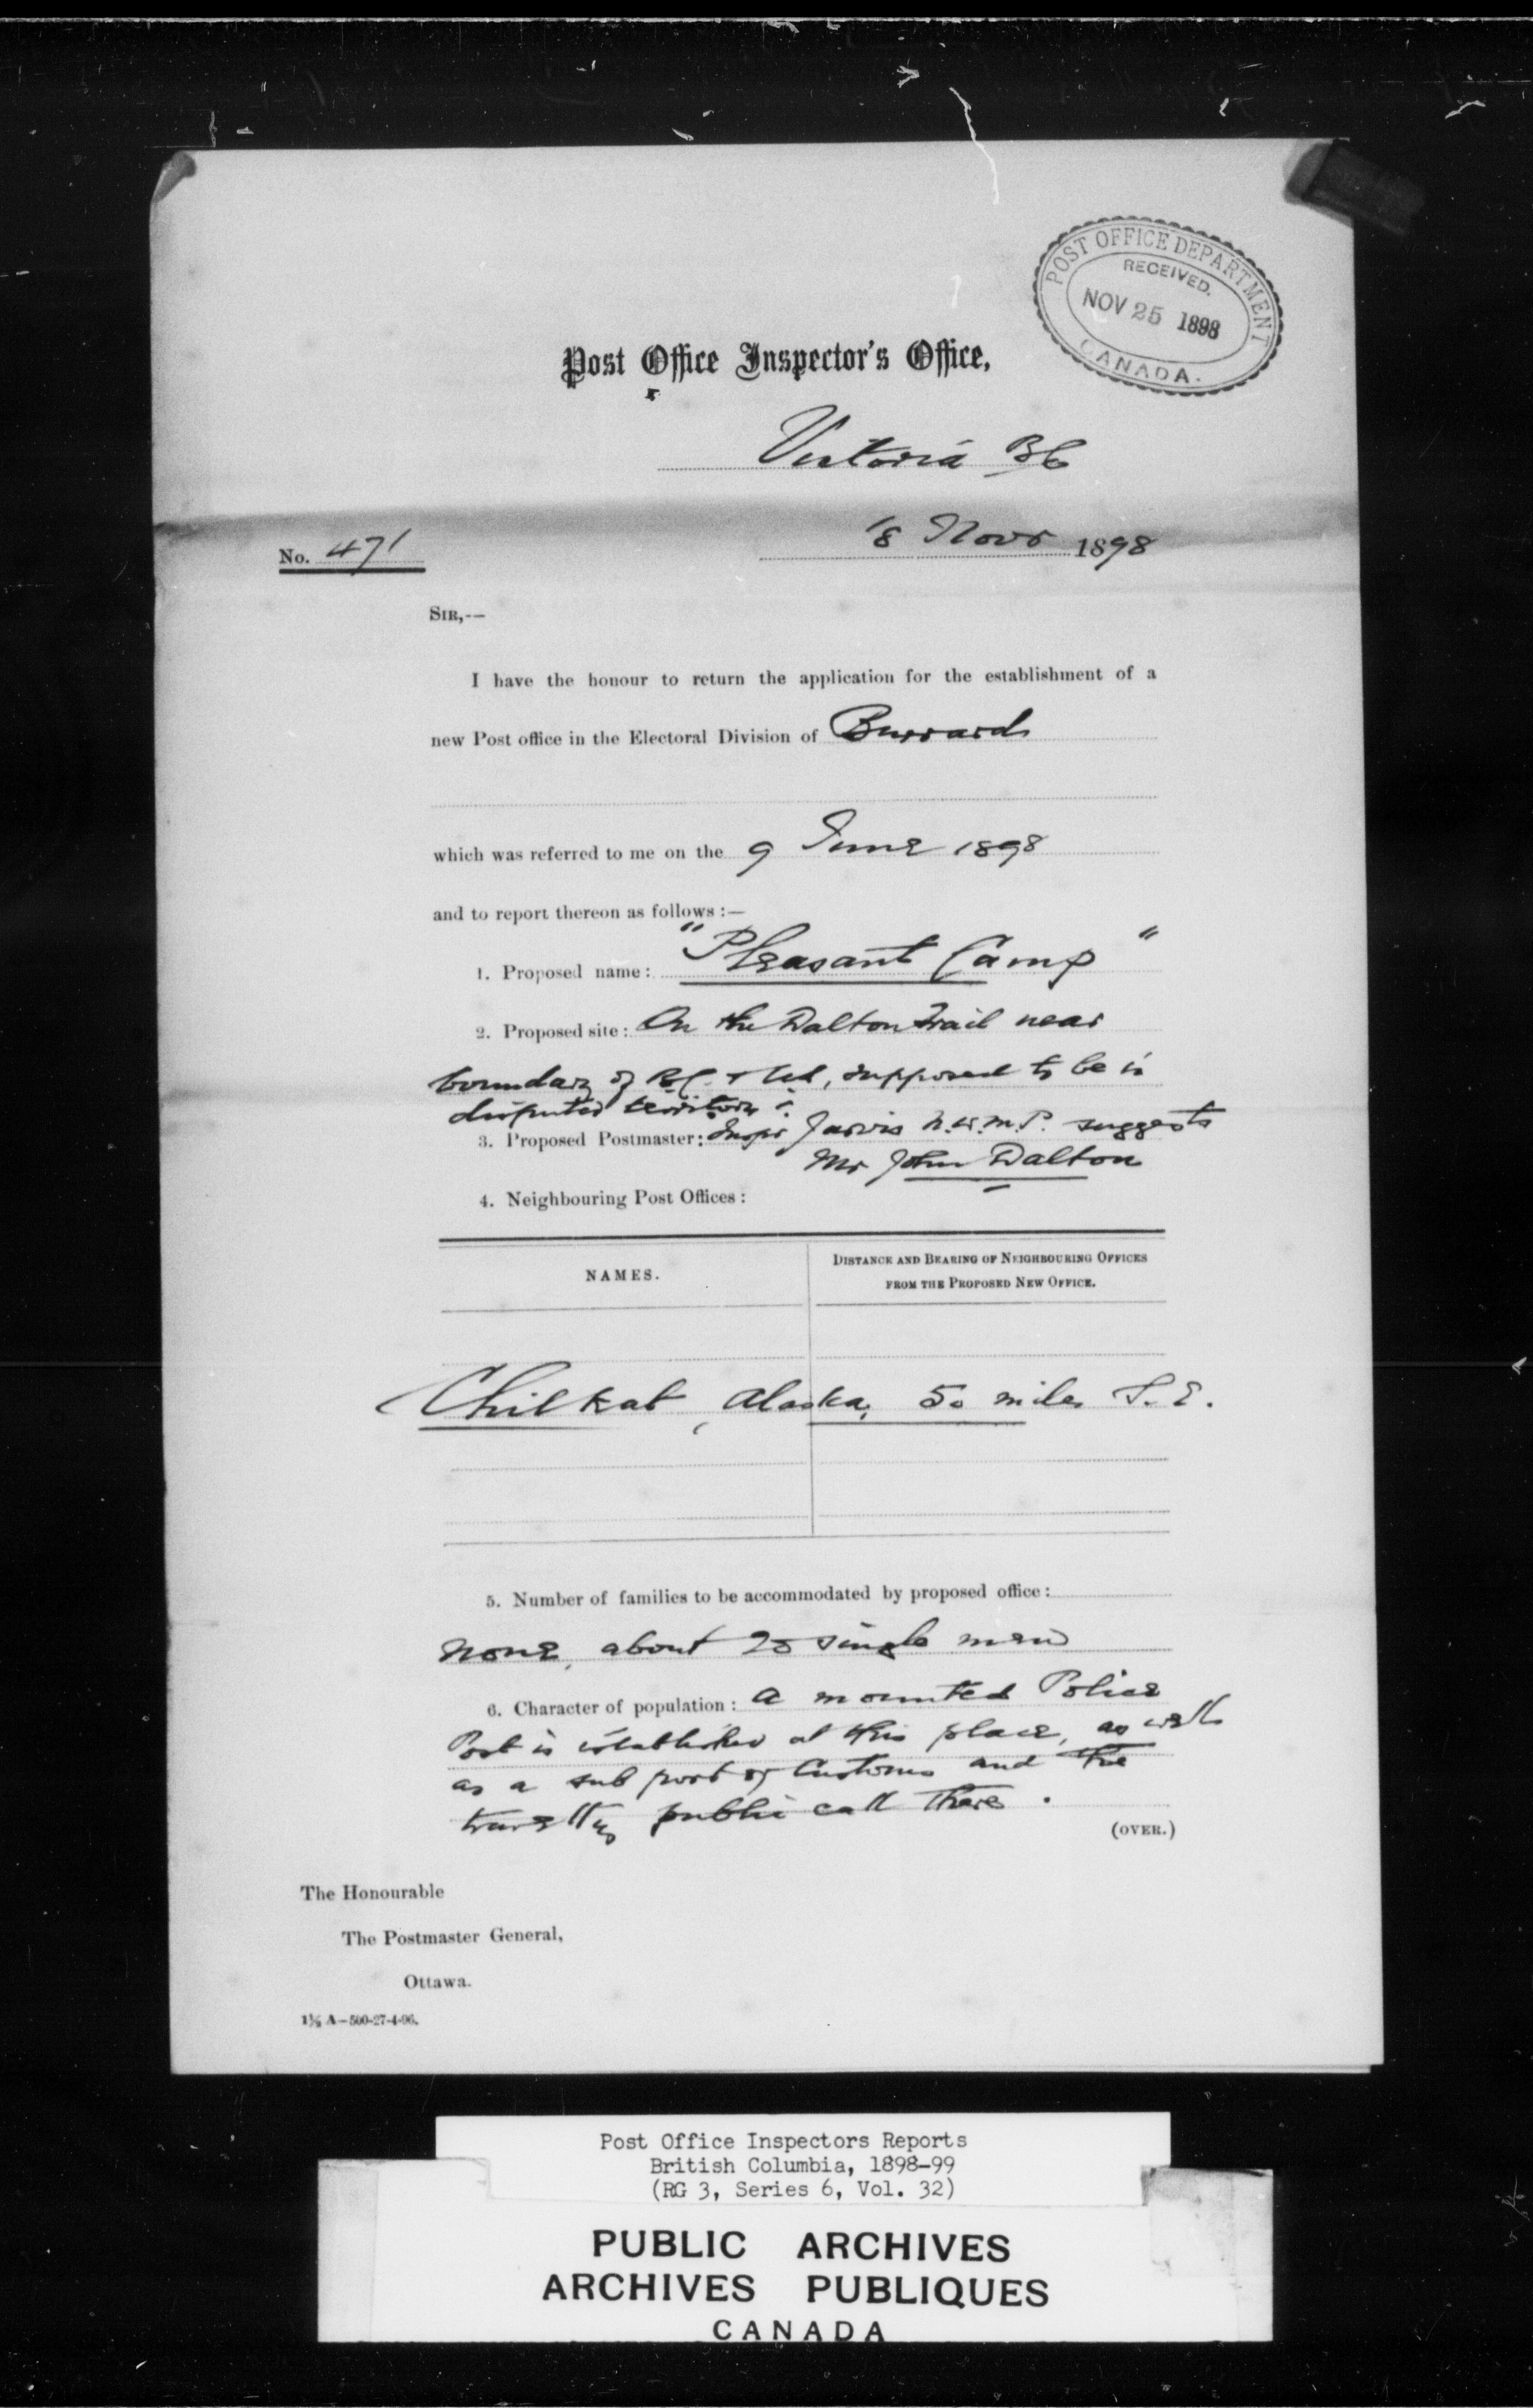 POST OFFICE DEPARTMENT
RECEIVED.
NOV 25 1898
CANADA.
Post Office Inspector's Office,
Victoria BC
18 Novr 1898
No. 471
SIR,--
I have the honour to return the application for the establishment of a
new Post office in the Electoral Division of Burrard
which was referred to me on the 9 June 1898
and to report thereon as follows :—
1. Proposed name: "Pleasant Camp"
2. Proposed site: On the Dalton Trail near
boundary of B.C. & , supposed to be in
disputed territory.
3. Proposed Postmaster: Inspr Jarvis N.W.M.P. suggests
Mr John Dalton
4. Neighbouring Post Offices:
NAMES.
DISTANCE AND BEARING OF NEIGHBOURING OFFICES
FROM THE PROPOSED NEW OFFICE.
Chilkat, Alaska, 50 miles S.E.
5. Number of families to be accommodated by proposed office:
None, about 20 single men
6. Character of population: A mounted Police
Post is established at this place, as well
as a sub port of Customs and the
travelling public call there.
(OVER.)
The Honourable
The Postmaster General,
Ottawa.
1½ A—500-27-4-96.
Post Office Inspectors Reports
British Columbia, 1898-99
(RG 3, Series 6, Vol. 32)
PUBLIC ARCHIVES
ARCHIVES PUBLIQUES
CANADA